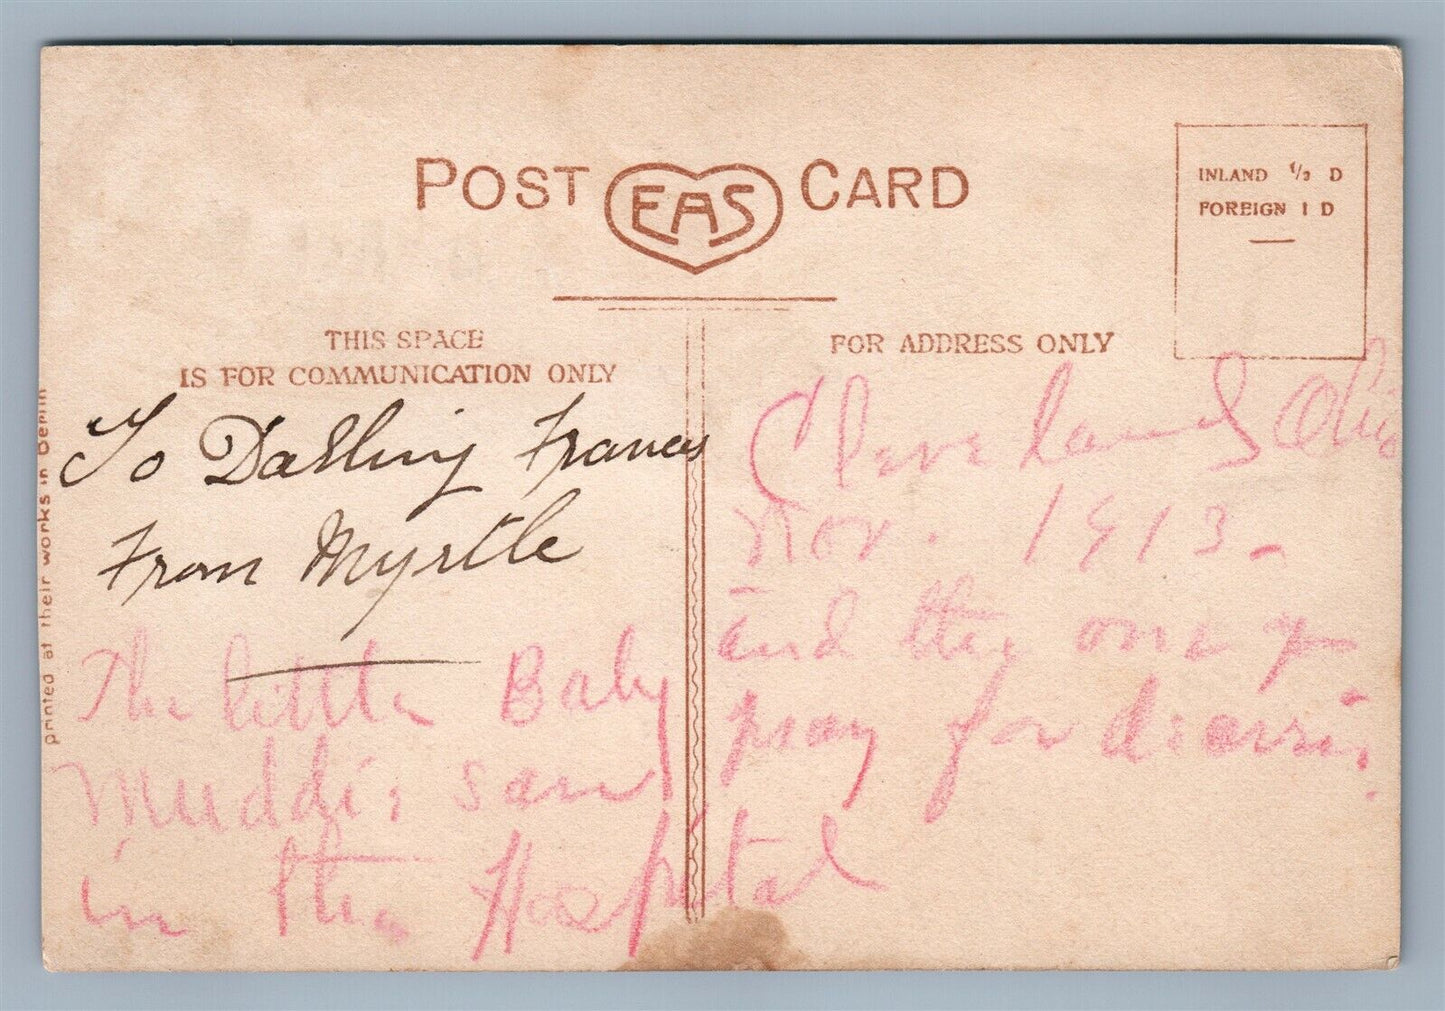 POST EAS CARD
INLAND 1/2 D
FOREIGN 1 D
THIS SPACE
IS FOR COMMUNICATION ONLY
To Darling Frances
From Myrtle
The little Baby
Muddie saw
in the Hospital
printed at their works in Berlin
FOR ADDRESS ONLY
Cleveland Ohio
Nov. 1913.
and the one I
pray for